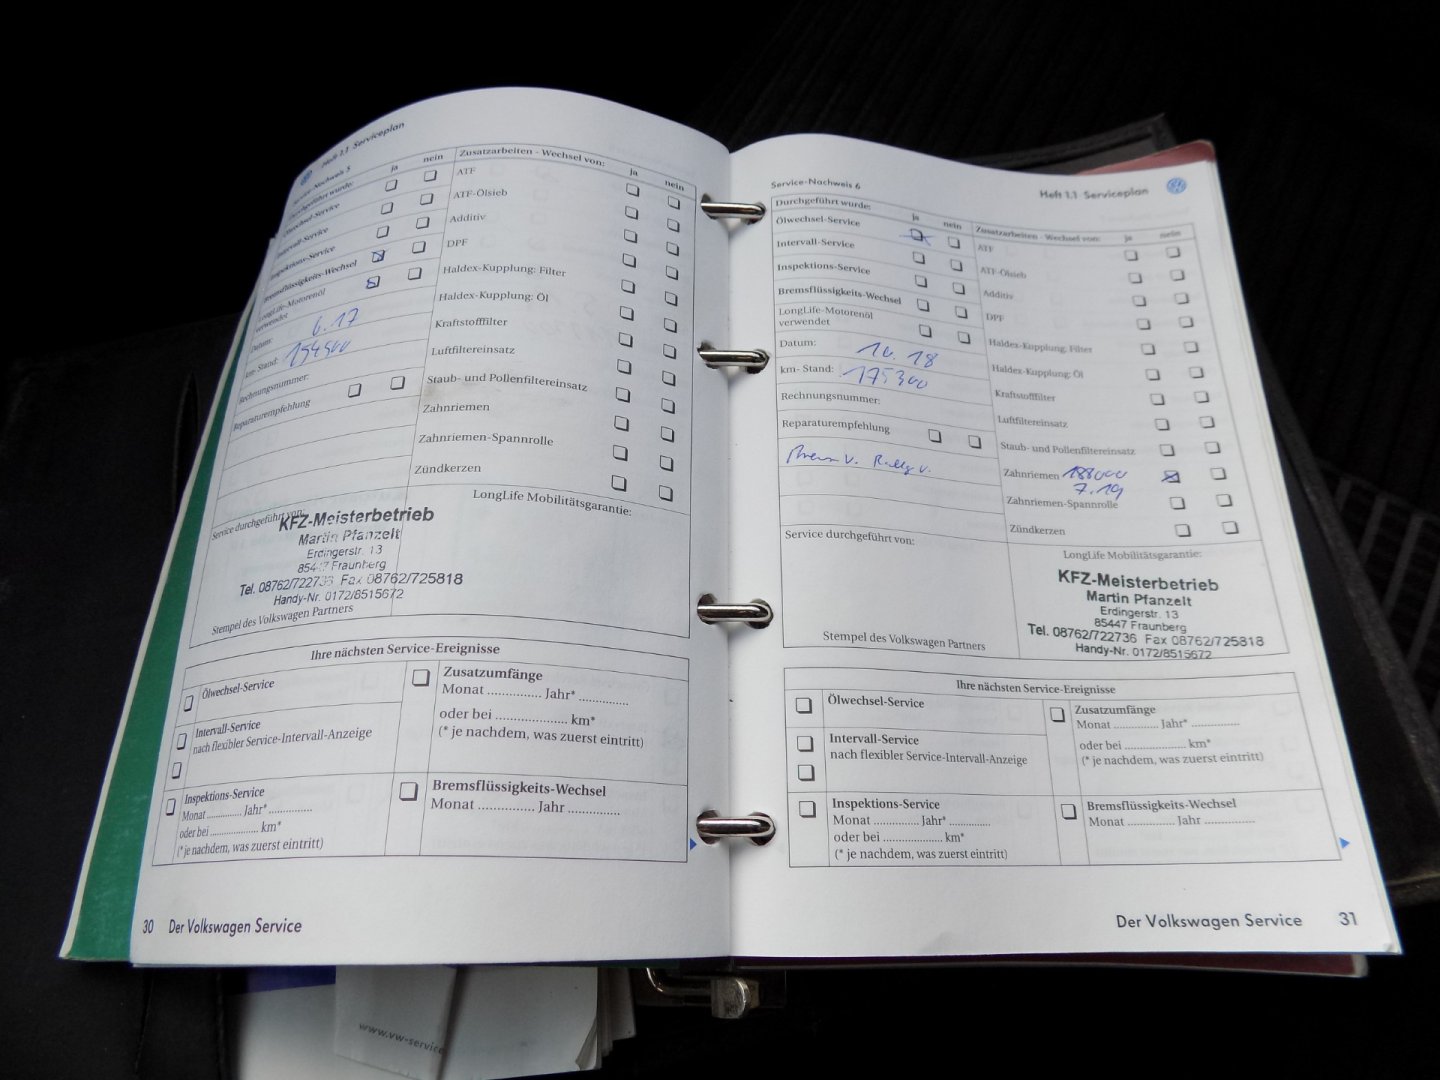 Heft 1.1 Serviceplan
Service-Nachweis 5
Durchgeführt wurde:
ja
nein
Ölwechsel-Service
Intervall-Service
Inspektions-Service
Bremsflüssigkeits-Wechsel
LongLife-Motorenöl
verwendet
Datum:
6.17
km-Stand:
154500
Rechnungsnummer:
Reparaturempfehlung
Zusatzarbeiten - Wechsel von:
ja
nein
ATF
ATF-Ölsieb
Additiv
DPF
Haldex-Kupplung: Filter
Haldex-Kupplung: Öl
Kraftstofffilter
Luftfiltereinsatz
Staub- und Pollenfiltereinsatz
Zahnriemen
Zahnriemen-Spannrolle
Zündkerzen
LongLife Mobilitätsgarantie:
Service durchgeführt von:
KFZ-Meisterbetrieb
Martin Pfanzelt
Erdingerstr. 13
85447 Fraunberg
Tel. 08762/722736 Fax 08762/725818
Handy-Nr. 0172/8515672
Stempel des Volkswagen Partners
Ihre nächsten Service-Ereignisse
Ölwechsel-Service
Intervall-Service
nach flexibler Service-Intervall-Anzeige
Inspektions-Service
Monat .............. Jahr* ..............
oder bei .................... km*
(* je nachdem, was zuerst eintritt)
Zusatzumfänge
Monat ............... Jahr* ..............
oder bei .................... km*
(* je nachdem, was zuerst eintritt)
Bremsflüssigkeits-Wechsel
Monat ............... Jahr ..............
30 Der Volkswagen Service
Service-Nachweis 6
Heft 1.1 Serviceplan
Durchgeführt wurde:
ja
nein
Ölwechsel-Service
Intervall-Service
Inspektions-Service
Bremsflüssigkeits-Wechsel
LongLife-Motorenöl
verwendet
Datum:
10.18
km- Stand:
175300
Rechnungsnummer:
Reparaturempfehlung
Zusatzarbeiten - Wechsel von:
ja
nein
ATF
ATF-Ölsieb
Additiv
DPF
Haldex-Kupplung: Filter
Haldex-Kupplung: Öl
Kraftstofffilter
Luftfiltereinsatz
Staub- und Pollenfiltereinsatz
Zahnriemen 188000
7.19
Zahnriemen-Spannrolle
Zündkerzen
Service durchgeführt von:
Stempel des Volkswagen Partners
LongLife Mobilitätsgarantie:
KFZ-Meisterbetrieb
Martin Pfanzelt
Erdingerstr. 13
85447 Fraunberg
Tel. 08762/722736 Fax 08762/725818
Handy-Nr. 0172/8515672
Ihre nächsten Service-Ereignisse
Ölwechsel-Service
Intervall-Service
nach flexibler Service-Intervall-Anzeige
Inspektions-Service
Monat .............. Jahr* ..............
oder bei .................... km*
(* je nachdem, was zuerst eintritt)
Zusatzumfänge
Monat .............. Jahr* ..............
oder bei .................... km*
(* je nachdem, was zuerst eintritt)
Bremsflüssigkeits-Wechsel
Monat .............. Jahr ..............
Der Volkswagen Service 31
www.vw-service